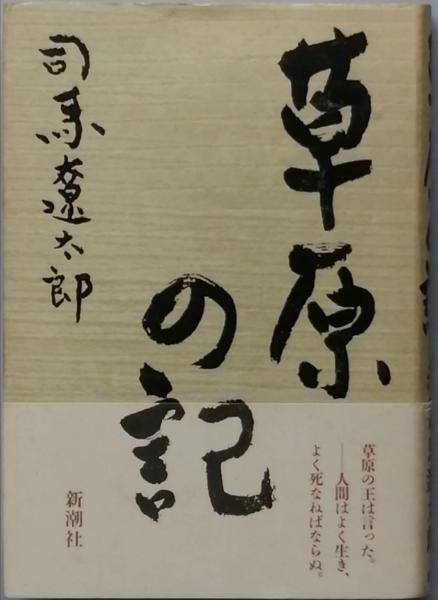 草原
の記
司馬遼太郎
草原の王は言った。
――人間はよく生き、
よく死なねばならぬ。
新潮社